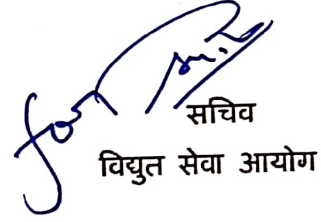 सचिव
विद्युत सेवा आयोग